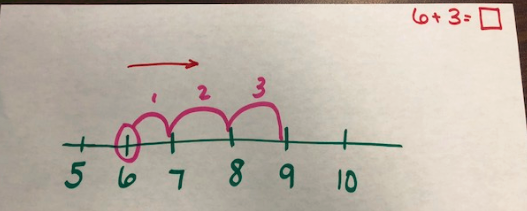 6 + 3 = □
1 2 3
5 6 7 8 9 10